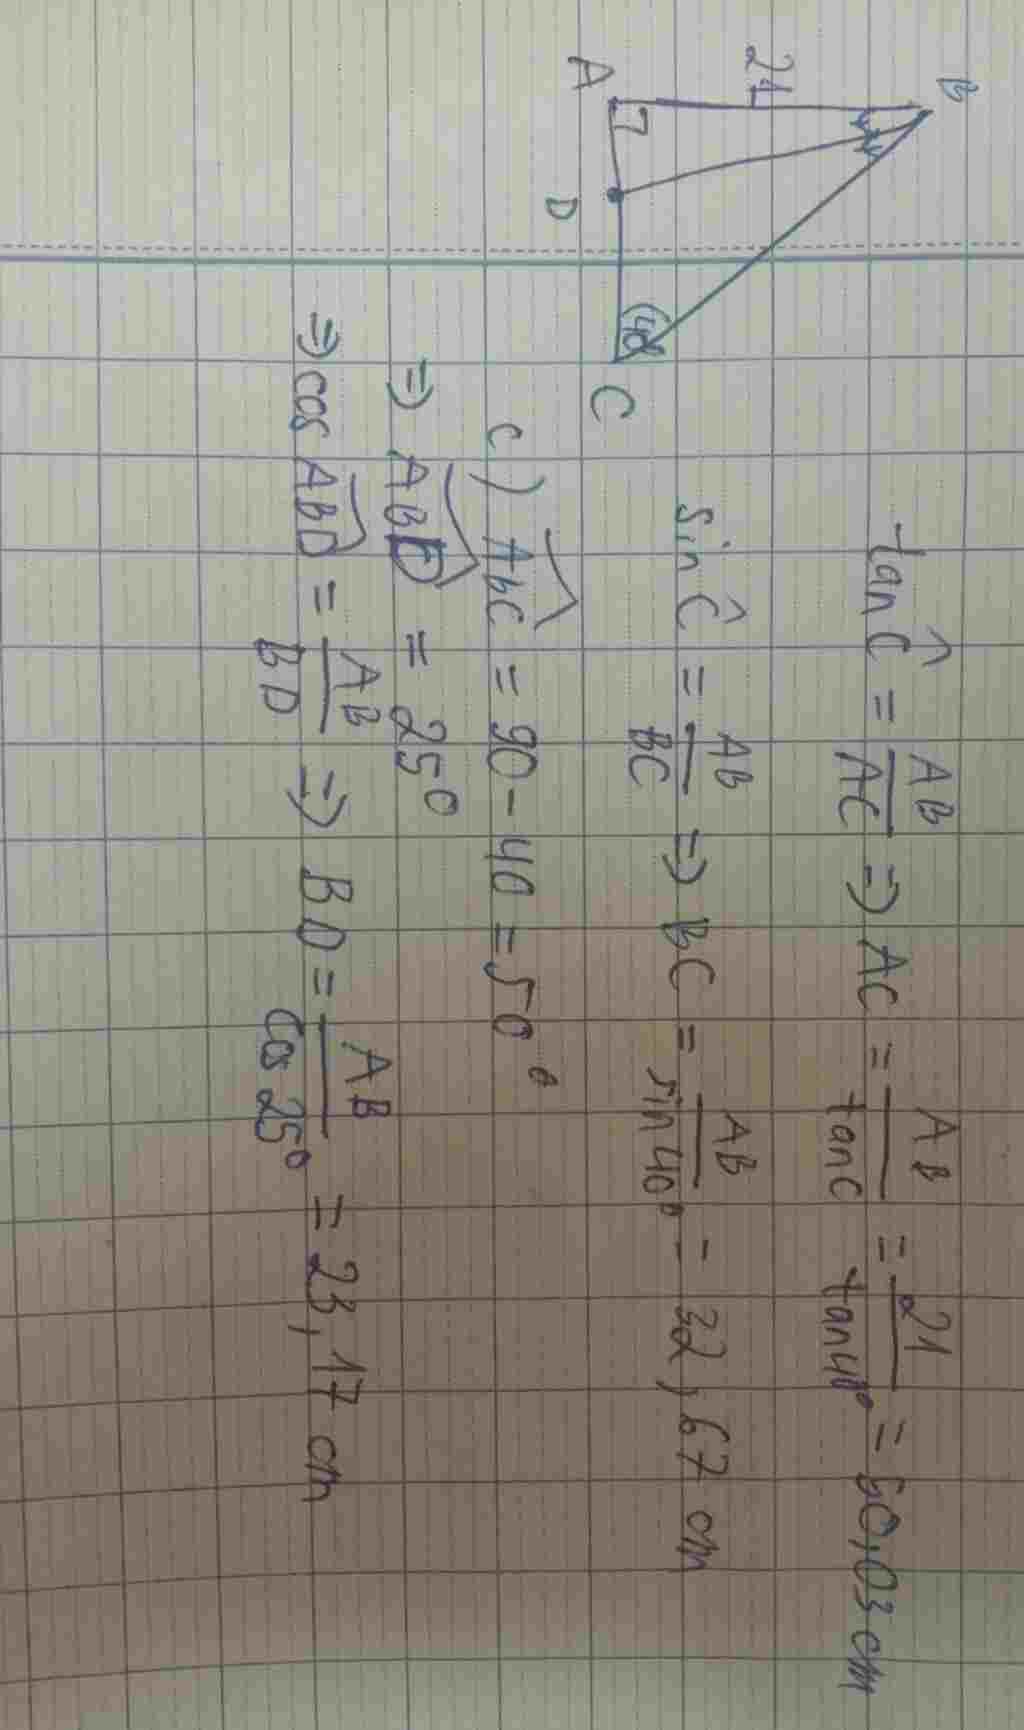 B
21
A
D
C
40
tan Ĉ = AB/AC => AC = AB/tan C = 21/tan 40° = 60,03 cm
sin Ĉ = AB/BC => BC = AB/sin 40° = 32,67 cm
c) AbC = 90 - 40 = 50°
=> ABD = 25°
=> cos ABD = AB/BD => BD = AB/cos 25° = 23,17 cm